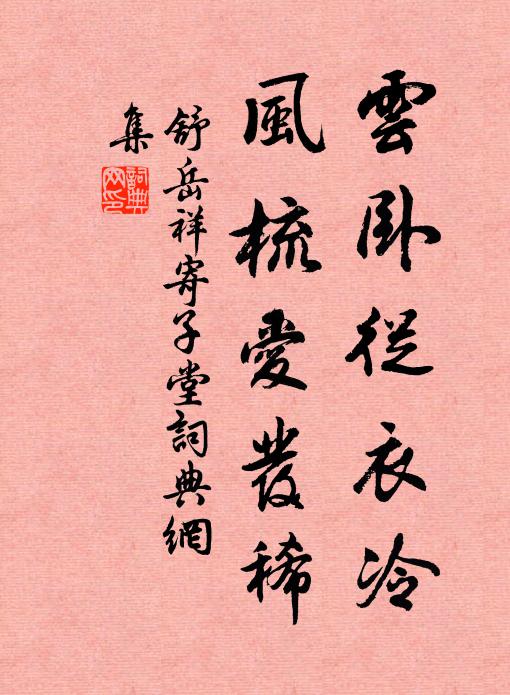 雲臥從衣冷
風梳愛發稀
舒岳祥寄子堂詞典網
集
詞典网印